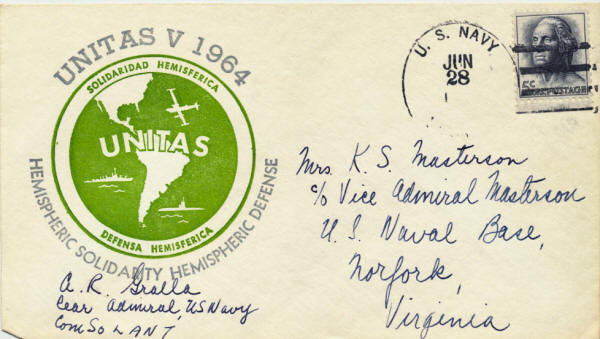 UNITAS V 1964
SOLIDARIDAD HEMISFERICA
UNITAS
DEFENSA HEMISFERICA
HEMISPHERIC SOLIDARITY HEMISPHERIC DEFENSE
U. S. NAVY
JUN
28
5¢
POSTAGE
Mrs. K. S. Masterson
c/o Vice Admiral Masterson
U. S. Naval Base,
Norfork,
Virginia
A. R. Gralla
Rear Admiral, US Navy
ComSoLANT